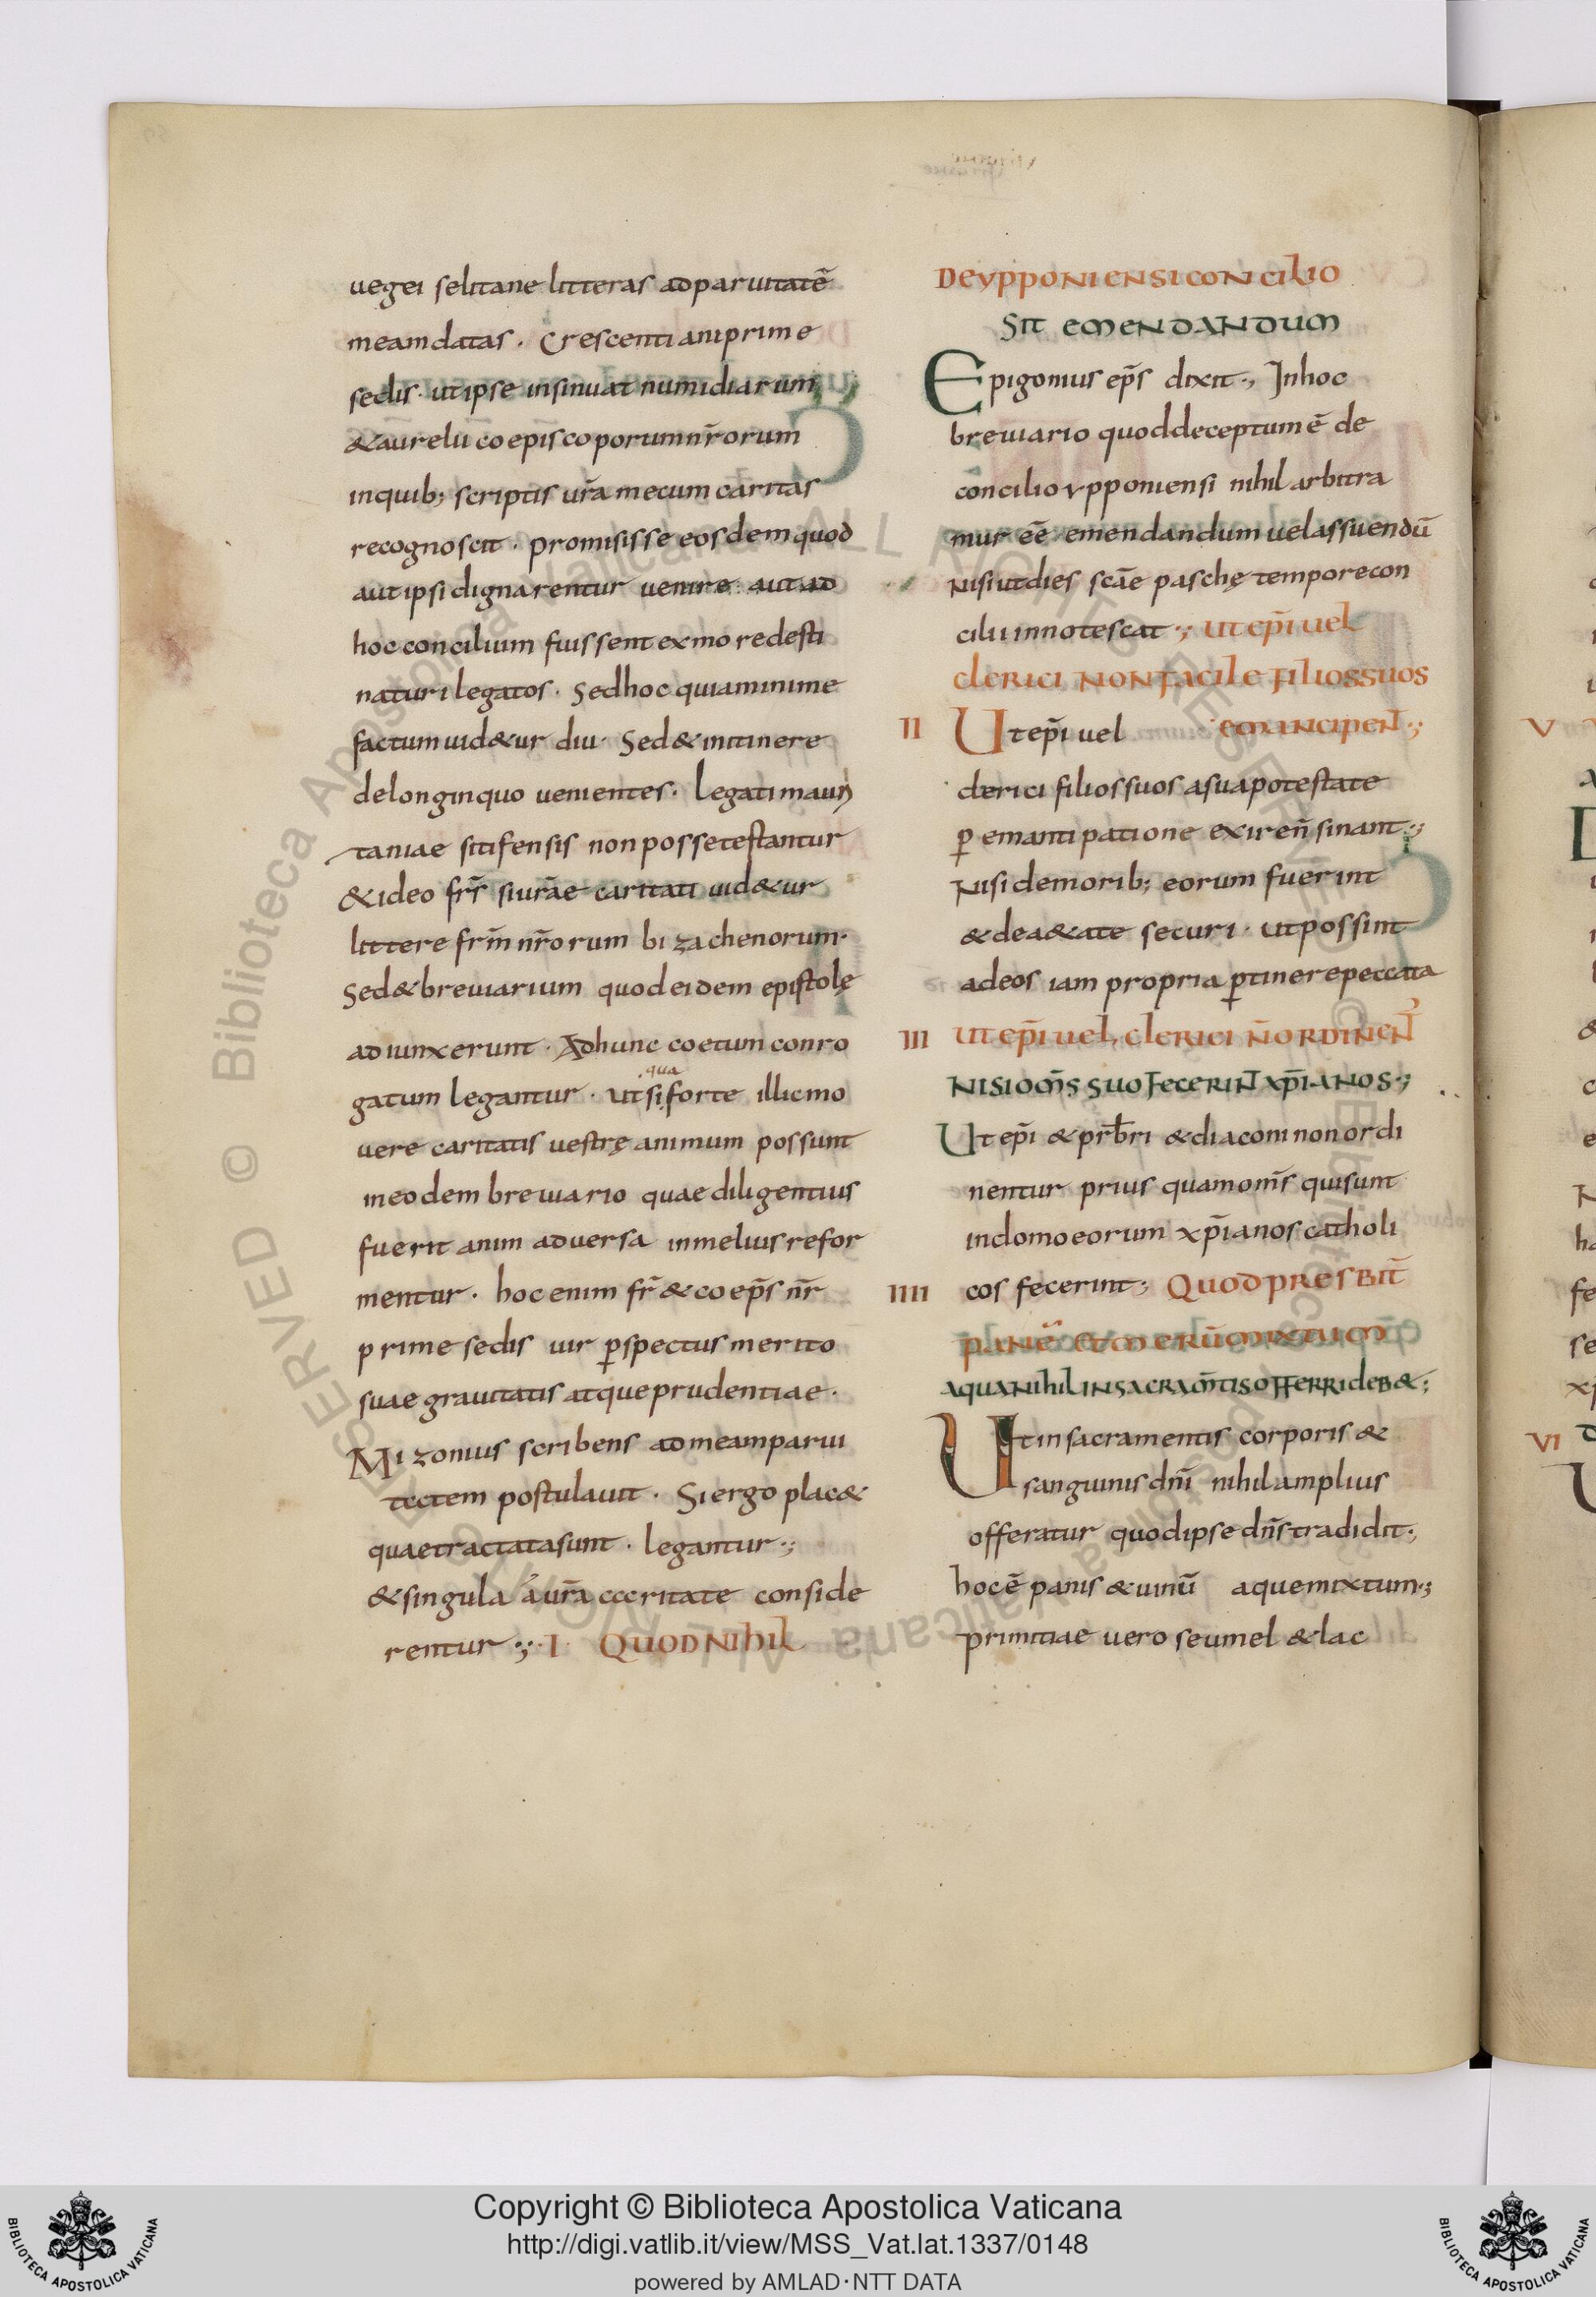 uegei selitane litteras ad paruitatē
meam datas. Crescentiani prime
sedis. ut ipse insinuat numidiarum
& aurelii coepiscoporum nr̄orum
in quib; scriptis ur̄a mecum caritas
recognoscit. promisisse eosdem quod
aut ipsi dignarentur uenire. aut ad
hoc concilium fuissent ex more desti
naturi legatos. Sed hoc quia minime
factum uid&ur diu. Sed & in itinere
de longinquo uenientes. legati mauri
taniae sitifensis non posse testantur
& ideo frs̄ si urāe caritati uid&ur
littere frm̄ nr̄orum bizachenorum.
Sed & breuiarium quod eidem epistolę
adiunxerunt. Ad hunc coetum conro
qua
gatum legantur. ut si forte illic mo
uere caritatis uestrę animum possunt
in eodem breuiario quae diligentius
fuerit anim aduersa in melius refor
mentur. hoc enim fr̄ & coep̄s nr̄
prime sedis uir ꝑspectus merito
suae grauitatis atque prudentiae.
Mizonius scribens ad meam parui
tctem postulauit. Si ergo plac&
quae tractata sunt. legantur.;
& singula a ur̄a cccritate conside
rentur.; I QUOD NIHIL
DE YPPONIENSI CONCILIO
SIT EMENDANDUM
Epigonius ep̄s dixit., In hoc
breuiario quod deceptum ē de
concilio ypponiensi nihil arbitra
mur eē emendandum uel assuendū
Nisi ut dies scāe paschę tempore con
cilii innotescat.; UT EP̄I UEL
CLERICI NON FACILE FILIOS SUOS
II Ut ep̄i uel EMANCIPEN̄.;
clerici filios suos a sua potestate
ꝑ emantipatione exiren̄ sinant.;
Nisi de morib; eorum fuerint
& de a&ate securi. ut possint
ad eos iam propria ꝑtinere peccata
III UT EP̄I UEL CLERICI N̄ ORDINEN̄
NISI OM̄S SUO FECERIN̄ XP̄IANOS.;
Ut ep̄i & prb̄ri & diaconi non ordi
nentur prius quam om̄s qui sunt
in domo eorum xp̄ianos catholi
IIII cos fecerint; QUOD PRESBIT̄
PANĒ ET MERŪ MIXTUM
AQUA NIHIL IN SACRAM̄TIS OFFERRI DEB&;
Ut in sacramentis corporis &
sanguinis dn̄i nihil amplius
offeratur quod ipse dn̄s tradidit.,
hoc ē panis & uinū aque mixtum.;
primitiae uero seu mel & lac
V
VI
Copyright © Biblioteca Apostolica Vaticana
http://digi.vatlib.it/view/MSS_Vat.lat.1337/0148
powered by AMLAD·NTT DATA
BIBLIOTECA APOSTOLICA VATICANA
BIBLIOTECA APOSTOLICA VATICANA